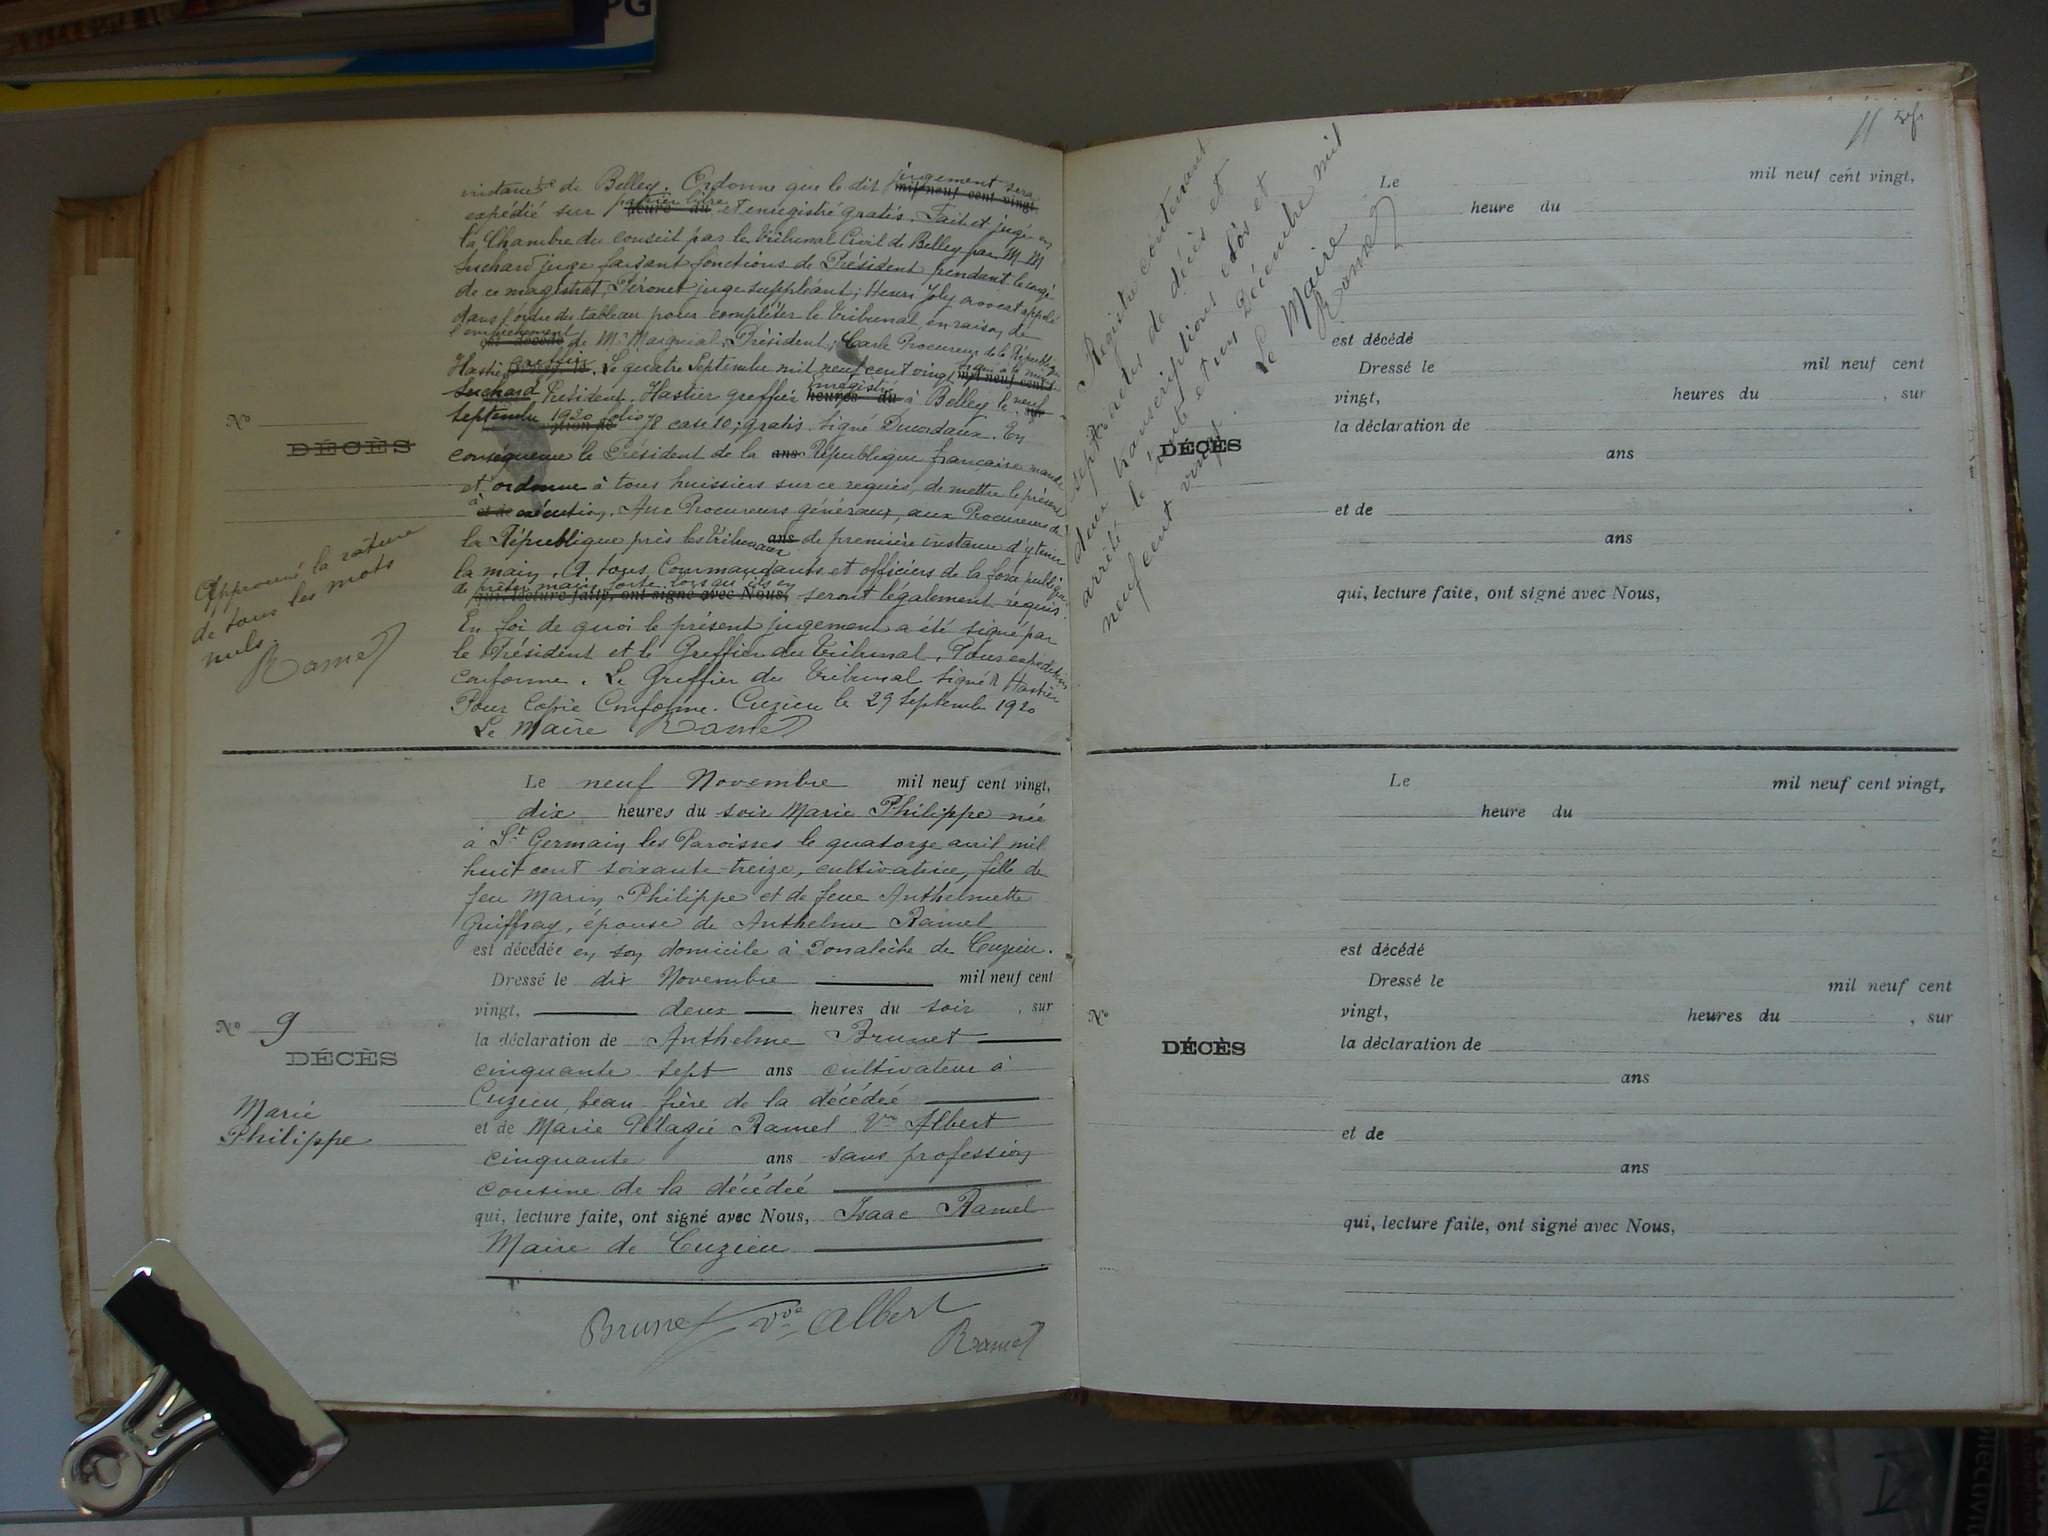 instance de Belley. Ordonne que le dit jugement sera
mil neuf cent vingt
expédié sur papier libre et enregistré gratis. Fait et jugé en
heure du
la Chambre du conseil par le Tribunal Civil de Belley par M. M
Suchard juge faisant fonctions de Président pendant le congé
de ce magistrat, Péronet juge suppléant; Henri Joly avocat appelé
dans l'ordre du tableau pour compléter le Tribunal, en raison de
l'empêchement de Mr Maignial, Président; Carle Procureur de la République
est décédé
Hastier greffier. Le quatre Septembre mil neuf cent vingt
mil neuf cent
Suchard, Président. Hastier greffier Enregistré à Belley le neuf
heures du
Septembre 1920 folio 78 case 10; gratis. Signé
En
conséquence le Président de la République française mande
ans
et ordonne à tous huissiers sur ce requis, de mettre le présent
à exécution. Aux Procureurs généraux, aux Procureurs de
et de
la République près les Tribunaux de première instance d'y tenir
ans
la main. A tous Commandants et officiers de la force publique
de prêter main forte lorsqu'ils en seront légalement requis.
qui, lecture faite, ont signé avec Nous,
En foi de quoi le présent jugement a été signé par
le Président et le Greffier du Tribunal. Pour expédition
conforme. Le Greffier du Tribunal signé Hastier
Pour Copie Conforme. Cuzieu le 29 Septembre 1920
Le Maire Ramel
No
DÉCÈS
Approuvé la rature
de tous les mots
nuls.
Ramel
Le neuf Novembre mil neuf cent vingt,
dix heures du soir Marie Philippe née
à St Germain les Paroisses le quatorze avril mil
huit cent soixante-treize, cultivatrice, fille de
feu Marin Philippe et de feue Anthelmette
Guiffray, épouse de Anthelme Ramel
est décédée en son domicile à Donalèche de Cuzieu.
Dressé le dix Novembre mil neuf cent
vingt, deux heures du soir, sur
la déclaration de Anthelme Brunet
cinquante sept ans cultivateur à
Cuzieu, beau frère de la décédée
et de Marie Pélagie Ramel Vve Albert
cinquante ans sans profession
cousine de la décédée
qui, lecture faite, ont signé avec Nous, Isaac Ramel
Maire de Cuzieu
No 9
DÉCÈS
Marie
Philippe
Brunet Vve Albert
Ramel
Registre contenant
sept actes de décès et
deux transcriptions clos et
arrêté le trente et un Décembre mil
neuf cent vingt.
Le Maire
Ramel
11
Le mil neuf cent vingt,
heure du
est décédé
Dressé le mil neuf cent
vingt, heures du , sur
la déclaration de
DÉCÈS
ans
et de
ans
qui, lecture faite, ont signé avec Nous,
Le mil neuf cent vingt,
heure du
est décédé
Dressé le mil neuf cent
vingt, heures du , sur
No
la déclaration de
DÉCÈS
ans
et de
ans
qui, lecture faite, ont signé avec Nous,